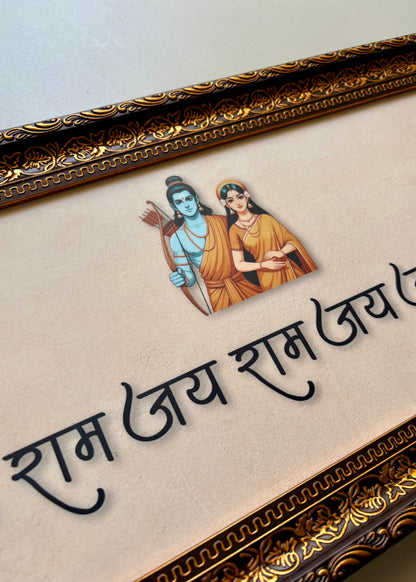 राम जय राम जय